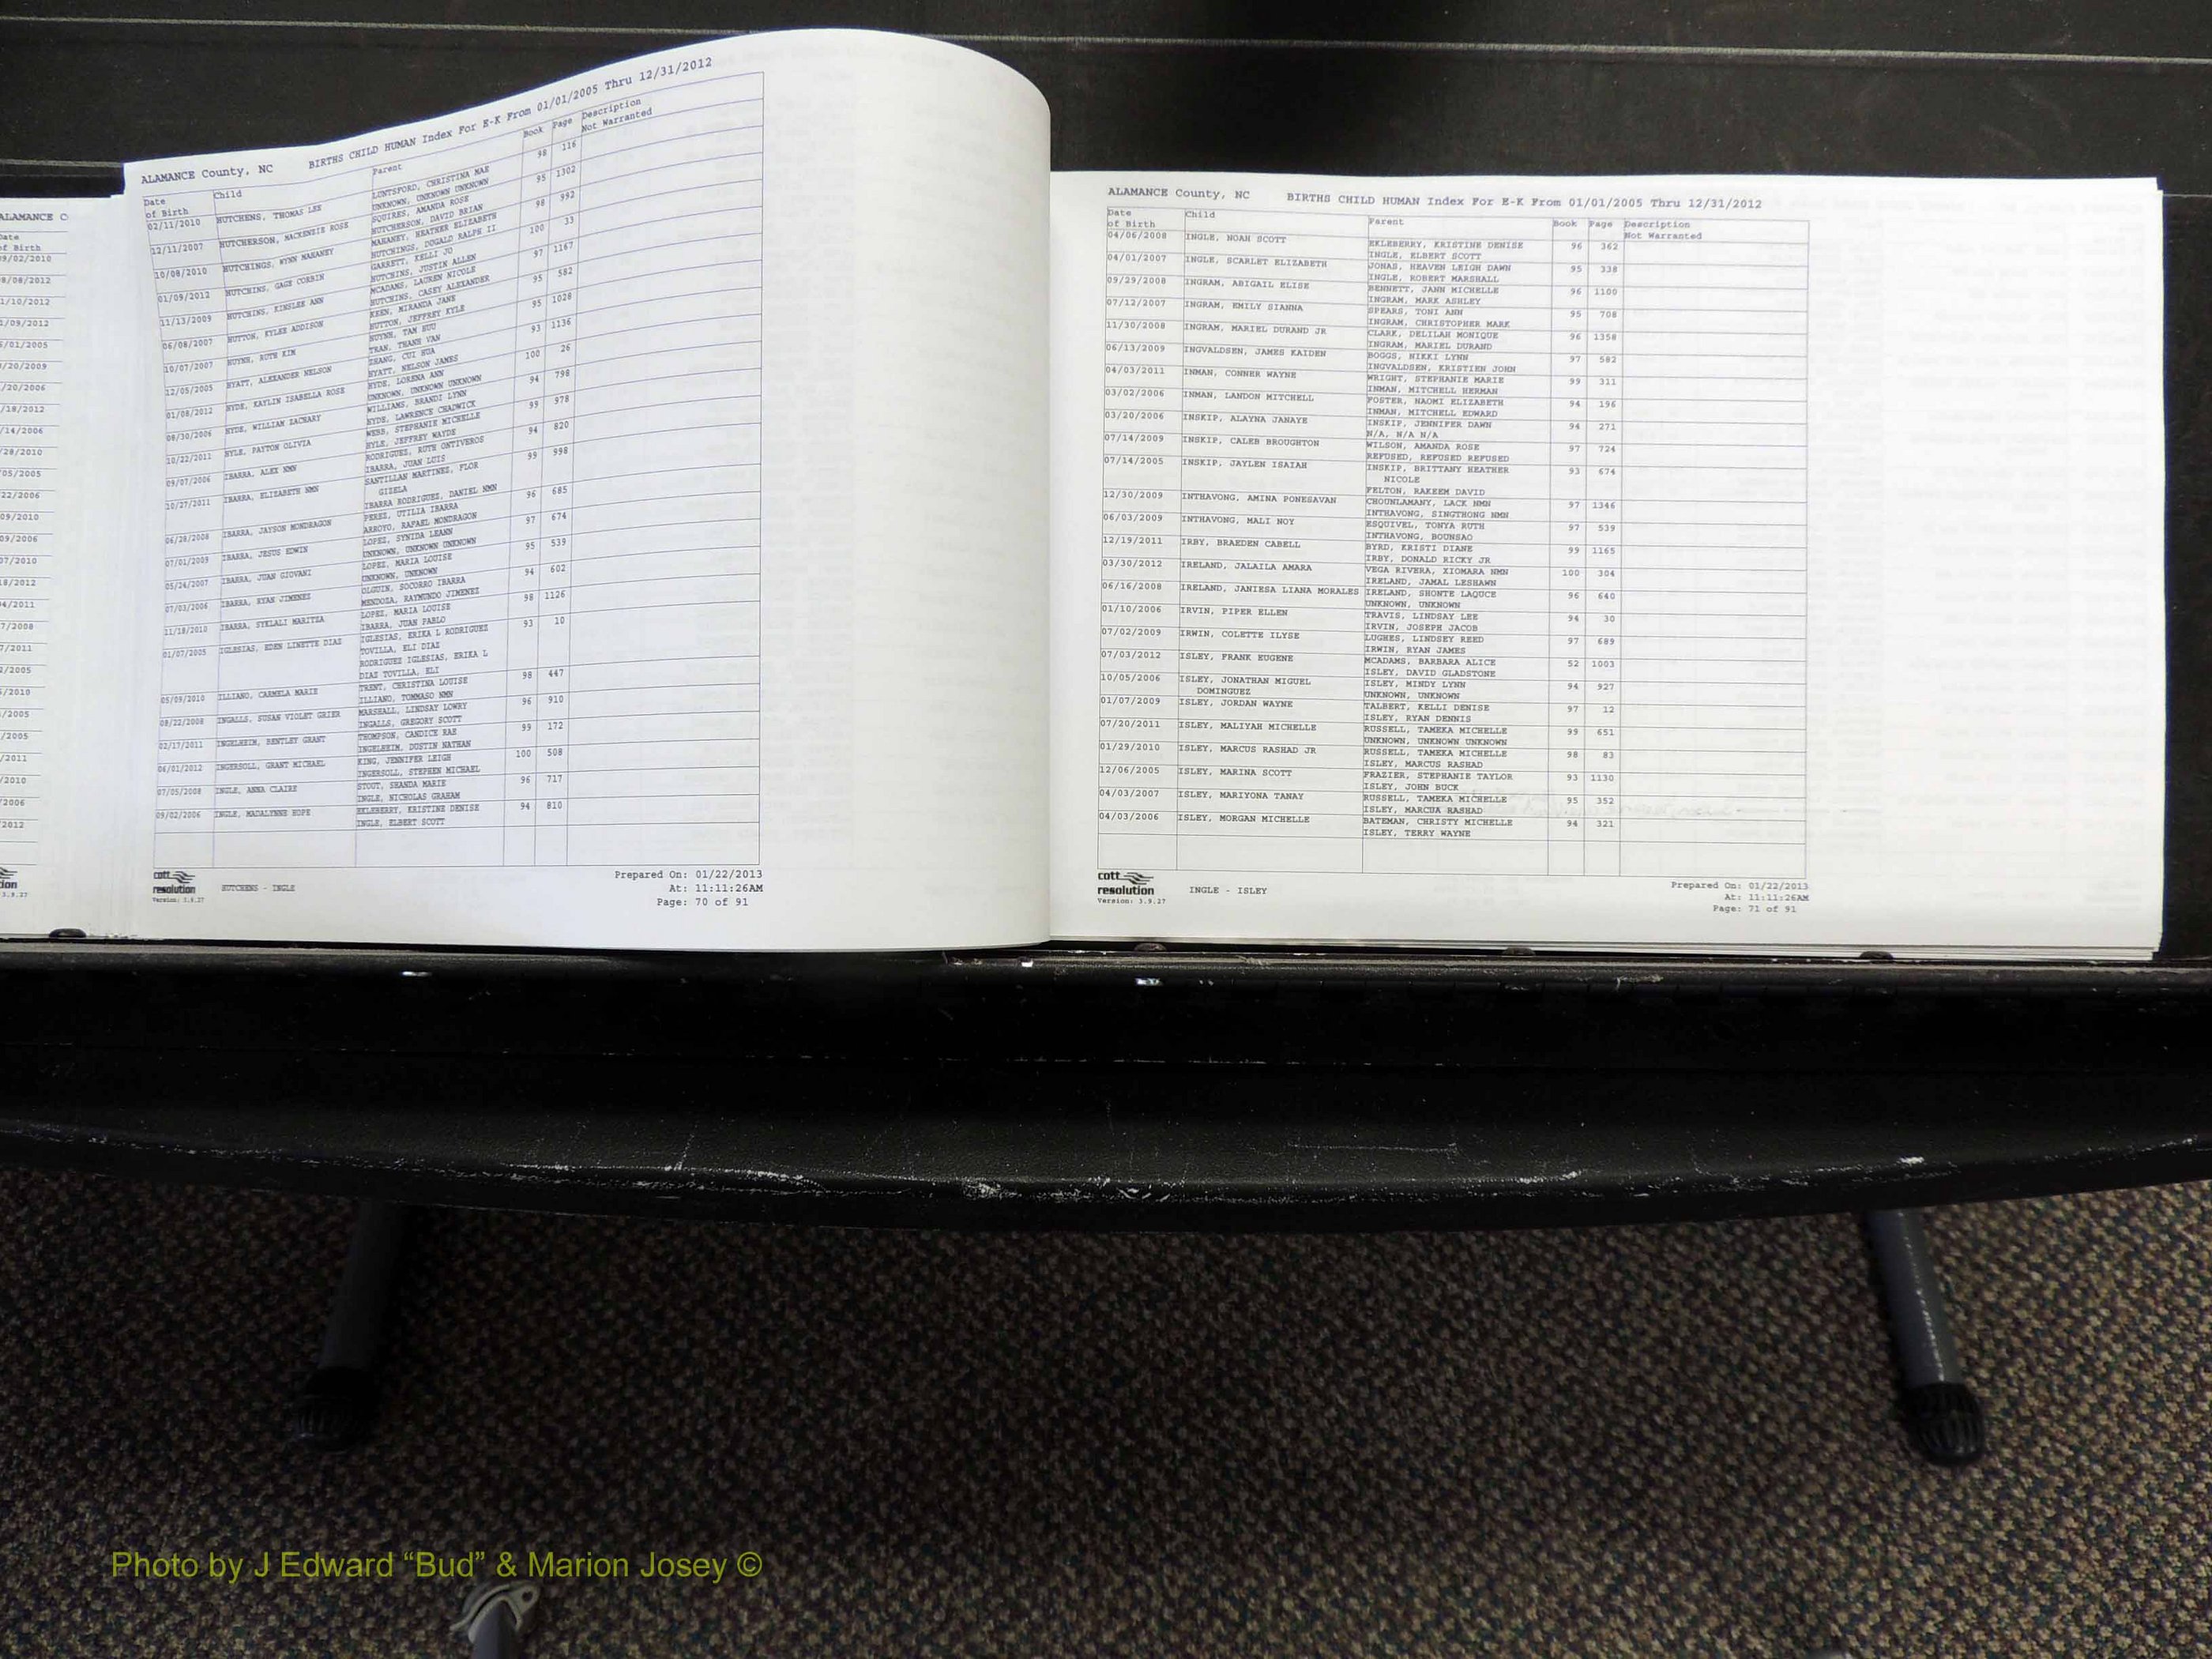 ALAMANCE C
Date
of Birth
ALAMANCE County, NC BIRTHS CHILD HUMAN Index For E-K From 01/01/2005 Thru 12/31/2012
Date of Birth Child Parent Book Page Description Not Warranted
02/11/2010 HUTCHENS, THOMAS LEE LUNTSFORD, CHRISTINA MAE 98 116
UNKNOWN, UNKNOWN UNKNOWN
12/11/2007 HUTCHERSON, MACKENZIE ROSE SQUIRES, AMANDA ROSE 95 1302
HUTCHERSON, DAVID BRIAN
10/08/2010 HUTCHINGS, WYNN MAHANEY MAHANEY, HEATHER ELIZABETH 98 992
HUTCHINGS, DOGALD RALPH II
01/09/2012 HUTCHINS, GAGE CORBIN GARRETT, KELLI JO 100 33
HUTCHINS, JUSTIN ALLEN
11/13/2009 HUTCHINS, KINSLEE ANN MCADAMS, LAUREN NICOLE 97 1167
HUTCHINS, CASEY ALEXANDER
06/08/2007 HUTTON, KYLEE ADDISON KEEN, MIRANDA JANE 95 582
HUTTON, JEFFREY KYLE
10/07/2007 HUYNH, RUTH KIM HUYNH, TAM HUU 95 1028
TRAN, THANH VAN
12/05/2005 HYATT, ALEXANDER NELSON ZHANG, CUI HUA 93 1136
HYATT, NELSON JAMES
01/08/2012 HYDE, KAYLIN ISABELLA ROSE HYDE, LORENA ANN 100 26
UNKNOWN, UNKNOWN UNKNOWN
08/30/2006 HYDE, WILLIAM ZACHARY WILLIAMS, BRANDI LYNN 94 798
HYDE, LAWRENCE CHADWICK
10/22/2011 HYLE, PAYTON OLIVIA WEBB, STEPHANIE MICHELLE 99 978
HYLE, JEFFREY WAYDE
09/07/2006 IBARRA, ALEX NMN RODRIGUEZ, RUTH ONTIVEROS 94 820
IBARRA, JUAN LUIS
10/27/2011 IBARRA, ELIZABETH NMN SANTILLAN MARTINEZ, FLOR 99 998
GIZELA
IBARRA RODRIGUEZ, DANIEL NMN
06/28/2008 IBARRA, JAYSON MONDRAGON PEREZ, UTILIA IBARRA 96 685
ARROYO, RAFAEL MONDRAGON
07/01/2009 IBARRA, JESUS EDWIN LOPEZ, SYNIDA LEANN 97 674
UNKNOWN, UNKNOWN UNKNOWN
05/24/2007 IBARRA, JUAN GIOVANI LOPEZ, MARIA LOUISE 95 539
UNKNOWN, UNKNOWN
07/03/2006 IBARRA, RYAN JIMENEZ OLGUIN, SOCORRO IBARRA 94 602
MENDOZA, RAYMUNDO JIMENEZ
11/18/2010 IBARRA, SYKLALI MARITZA LOPEZ, MARIA LOUISE 98 1126
IBARRA, JUAN PABLO
01/07/2005 IGLESIAS, EDEN LINETTE DIAZ IGLESIAS, ERIKA L RODRIGUEZ 93 10
TOVILLA, ELI DIAZ
RODRIGUEZ IGLESIAS, ERIKA L
DIAZ TOVILLA, ELI
05/09/2010 ILLIANO, CARMELA MARIE TRENT, CHRISTINA LOUISE 98 447
ILLIANO, TOMMASO NMN
08/22/2008 INGALLS, SUSAN VIOLET GRIER MARSHALL, LINDSAY LOWRY 96 910
INGALLS, GREGORY SCOTT
02/17/2011 INGELHEIM, BENTLEY GRANT THOMPSON, CANDICE RAE 99 172
INGELHEIM, DUSTIN NATHAN
06/01/2012 INGERSOLL, GRANT MICHAEL KING, JENNIFER LEIGH 100 508
INGERSOLL, STEPHEN MICHAEL
07/05/2008 INGLE, ANNA CLAIRE STOUT, SHANDA MARIE 96 717
INGLE, NICHOLAS GRAHAM
09/02/2006 INGLE, MADALYNNE HOPE EKLEBERRY, KRISTINE DENISE 94 810
INGLE, ELBERT SCOTT
cott
resolution HUTCHENS - INGLE
Version: 3.9.27
Prepared On: 01/22/2013
At: 11:11:26AM
Page: 70 of 91
ALAMANCE County, NC BIRTHS CHILD HUMAN Index For E-K From 01/01/2005 Thru 12/31/2012
Date of Birth Child Parent Book Page Description Not Warranted
04/06/2008 INGLE, NOAH SCOTT EKLEBERRY, KRISTINE DENISE 96 362
INGLE, ELBERT SCOTT
04/01/2007 INGLE, SCARLET ELIZABETH JONAS, HEAVEN LEIGH DAWN 95 338
INGLE, ROBERT MARSHALL
09/29/2008 INGRAM, ABIGAIL ELISE BENNETT, JANN MICHELLE 96 1100
INGRAM, MARK ASHLEY
07/12/2007 INGRAM, EMILY SIANNA SPEARS, TONI ANN 95 708
INGRAM, CHRISTOPHER MARK
11/30/2008 INGRAM, MARIEL DURAND JR CLARK, DELILAH MONIQUE 96 1358
INGRAM, MARIEL DURAND
06/13/2009 INGVALDSEN, JAMES KAIDEN BOGGS, NIKKI LYNN 97 582
INGVALDSEN, KRISTIEN JOHN
04/03/2011 INMAN, CONNER WAYNE WRIGHT, STEPHANIE MARIE 99 311
INMAN, MITCHELL HERMAN
03/02/2006 INMAN, LANDON MITCHELL FOSTER, NAOMI ELIZABETH 94 196
INMAN, MITCHELL EDWARD
03/20/2006 INSKIP, ALAYNA JANAYE INSKIP, JENNIFER DAWN 94 271
N/A, N/A N/A
07/14/2009 INSKIP, CALEB BROUGHTON WILSON, AMANDA ROSE 97 724
REFUSED, REFUSED REFUSED
07/14/2005 INSKIP, JAYLEN ISAIAH INSKIP, BRITTANY HEATHER 93 674
NICOLE
FELTON, RAKEEM DAVID
12/30/2009 INTHAVONG, AMINA PONESAVAN CHOUNLAMANY, LACK NMN 97 1346
INTHAVONG, SINGTHONG NMN
06/03/2009 INTHAVONG, MALI NOY ESQUIVEL, TONYA RUTH 97 539
INTHAVONG, BOUNSAO
12/19/2011 IRBY, BRAEDEN CABELL BYRD, KRISTI DIANE 99 1165
IRBY, DONALD RICKY JR
03/30/2012 IRELAND, JALAILA AMARA VEGA RIVERA, XIOMARA NMN 100 304
IRELAND, JAMAL LESHAWN
06/16/2008 IRELAND, JANIESA LIANA MORALES IRELAND, SHONTE LAQUCE 96 640
UNKNOWN, UNKNOWN
01/10/2006 IRVIN, PIPER ELLEN TRAVIS, LINDSAY LEE 94 30
IRVIN, JOSEPH JACOB
07/02/2009 IRWIN, COLETTE ILYSE LUGHES, LINDSEY REED 97 689
IRWIN, RYAN JAMES
07/03/2012 ISLEY, FRANK EUGENE MCADAMS, BARBARA ALICE 52 1003
ISLEY, DAVID GLADSTONE
10/05/2006 ISLEY, JONATHAN MIGUEL ISLEY, MINDY LYNN 94 927
DOMINGUEZ UNKNOWN, UNKNOWN
01/07/2009 ISLEY, JORDAN WAYNE TALBERT, KELLI DENISE 97 12
ISLEY, RYAN DENNIS
07/20/2011 ISLEY, MALIYAH MICHELLE RUSSELL, TAMEKA MICHELLE 99 651
UNKNOWN, UNKNOWN UNKNOWN
01/29/2010 ISLEY, MARCUS RASHAD JR RUSSELL, TAMEKA MICHELLE 98 83
ISLEY, MARCUS RASHAD
12/06/2005 ISLEY, MARINA SCOTT FRAZIER, STEPHANIE TAYLOR 93 1130
ISLEY, JOHN BUCK
04/03/2007 ISLEY, MARIYONA TANAY RUSSELL, TAMEKA MICHELLE 95 352
ISLEY, MARCUA RASHAD
04/03/2006 ISLEY, MORGAN MICHELLE BATEMAN, CHRISTY MICHELLE 94 321
ISLEY, TERRY WAYNE
cott
resolution INGLE - ISLEY
Version: 3.9.27
Prepared On: 01/22/2013
At: 11:11:26AM
Page: 71 of 91
Photo by J Edward “Bud” & Marion Josey ©